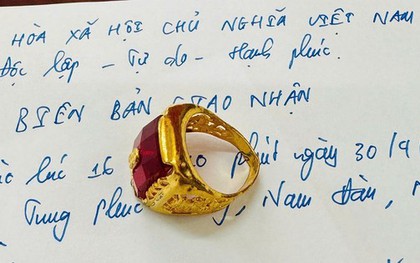 HÒA XÃ HỘI CHỦ NGHĨA VIỆT NAM
Độc lập - Tự do - Hạnh phúc.
BIÊN BẢN GIAO NHẬN
lúc 16 phút ngày 30/9
Trung phúc Nam Đàn,